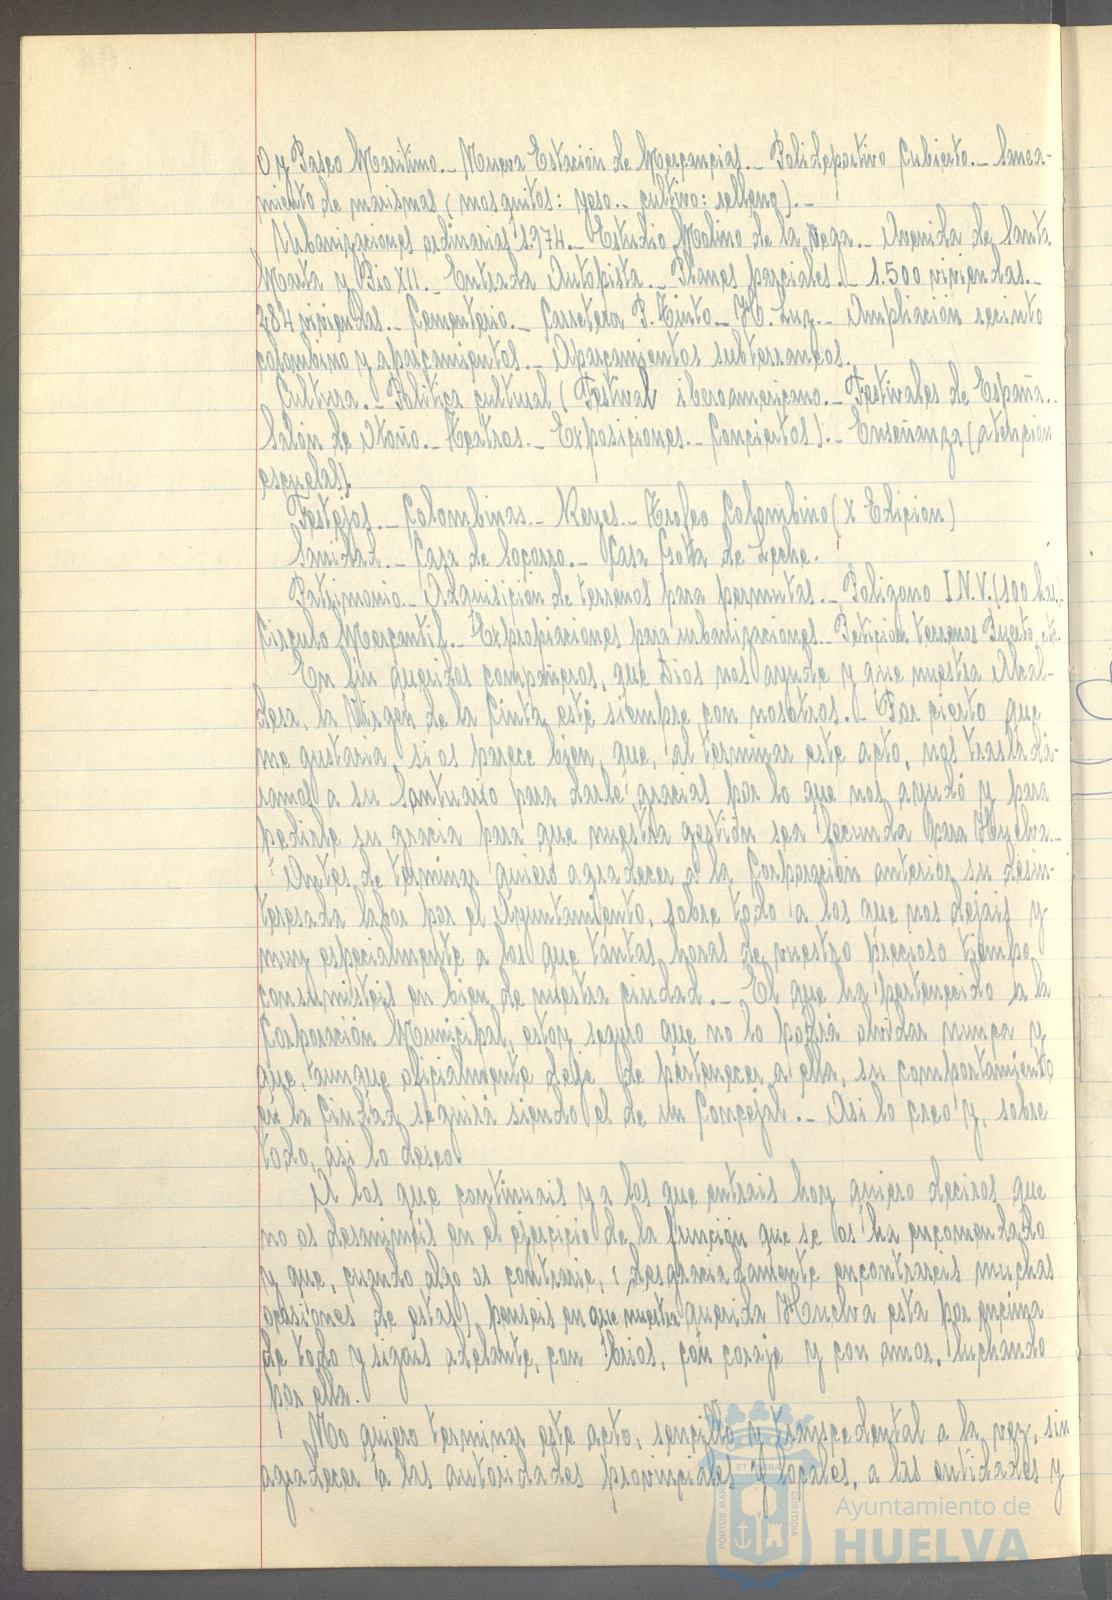 O y Paseo Maritimo.- Nueva Estación de Mercancias.- Polideportivo Cubierto.- Sanea-
miento de marismas (mosquitos: yeso.- cultivo: relleno).-
Urbanizaciones ordinarias 1.974.- Estudio Molino de la Vega.- Avenida de Santa
Marta y Pio XII.- Entrada Autopista.- Planes parciales.- 1.500 viviendas.-
384 viviendas.- Cementerio.- Carretera P. Tinto.- H. Luz.- Ampliación recinto
colombino y aparcamientos.- Aparcamientos subterraneos.
Cultura.- Politica cultural (Festival iberoamericano.- Festivales de España.-
Salón de Otoño.- Teatros.- Exposiciones.- Conciertos).- Enseñanza (atención
escuelas).
Festejos.- Colombinas.- Reyes.- Trofeo Colombino (X Edición)
Sanidad.- Casa de Socorro.- Casa Gota de Leche.
Patrimonio.- Adquisición de terrenos para permutas.- Poligono I.N.V. (100 has).-
Circulo Mercantil.- Expropiaciones para urbanizaciones.- Petición terrenos Puerto, etc.
En fin queridos compañeros, que Dios nos ayude y que nuestra Alcal-
desa, la Virgen de la Cinta, esté siempre con nosotros.- Por cierto que
me gustaria, si os parece bien, que, al terminar este acto, nos traslada-
ramos a su Santuario para darle gracias por lo que nos ayudó y para
pedirle su gracia para que nuestra gestión sea fecunda para Huelva.-
Antes de terminar quiero agradecer a la Corporación anterior su desin-
teresada labor por el Ayuntamiento, sobre todo a los que nos dejais y
muy especialmente a los que tantas horas de vuestro precioso tiempo
consumisteis en bien de nuestra ciudad.- El que ha pertenecido a la
Corporación Municipal, estoy seguro que no lo podrá olvidar nunca y
que, aunque oficialmente deje de pertenecer a ella, su comportamiento
en la Ciudad seguirá siendo el de un Concejal.- Asi lo creo y, sobre
todo, asi lo deseo.
A los que continuais y a los que entrais hoy quiero deciros que
no os desanimeis en el ejercicio de la función que se os ha encomendado
y que, cuando algo os contrarie, (desgraciadamente encontrareis muchas
ocasiones de estas), penseis en que nuestra querida Huelva esta por encima
de todo y sigais adelante, con brios, con coraje y con amor, luchando
por ella.
No quiero terminar este acto, sencillo y transcedental a la vez, sin
agradecer a las autoridades provinciales y locales, a las entidades y
PORTUS MARIS ET TERRAE CUSTODIA
Ayuntamiento de
HUELVA